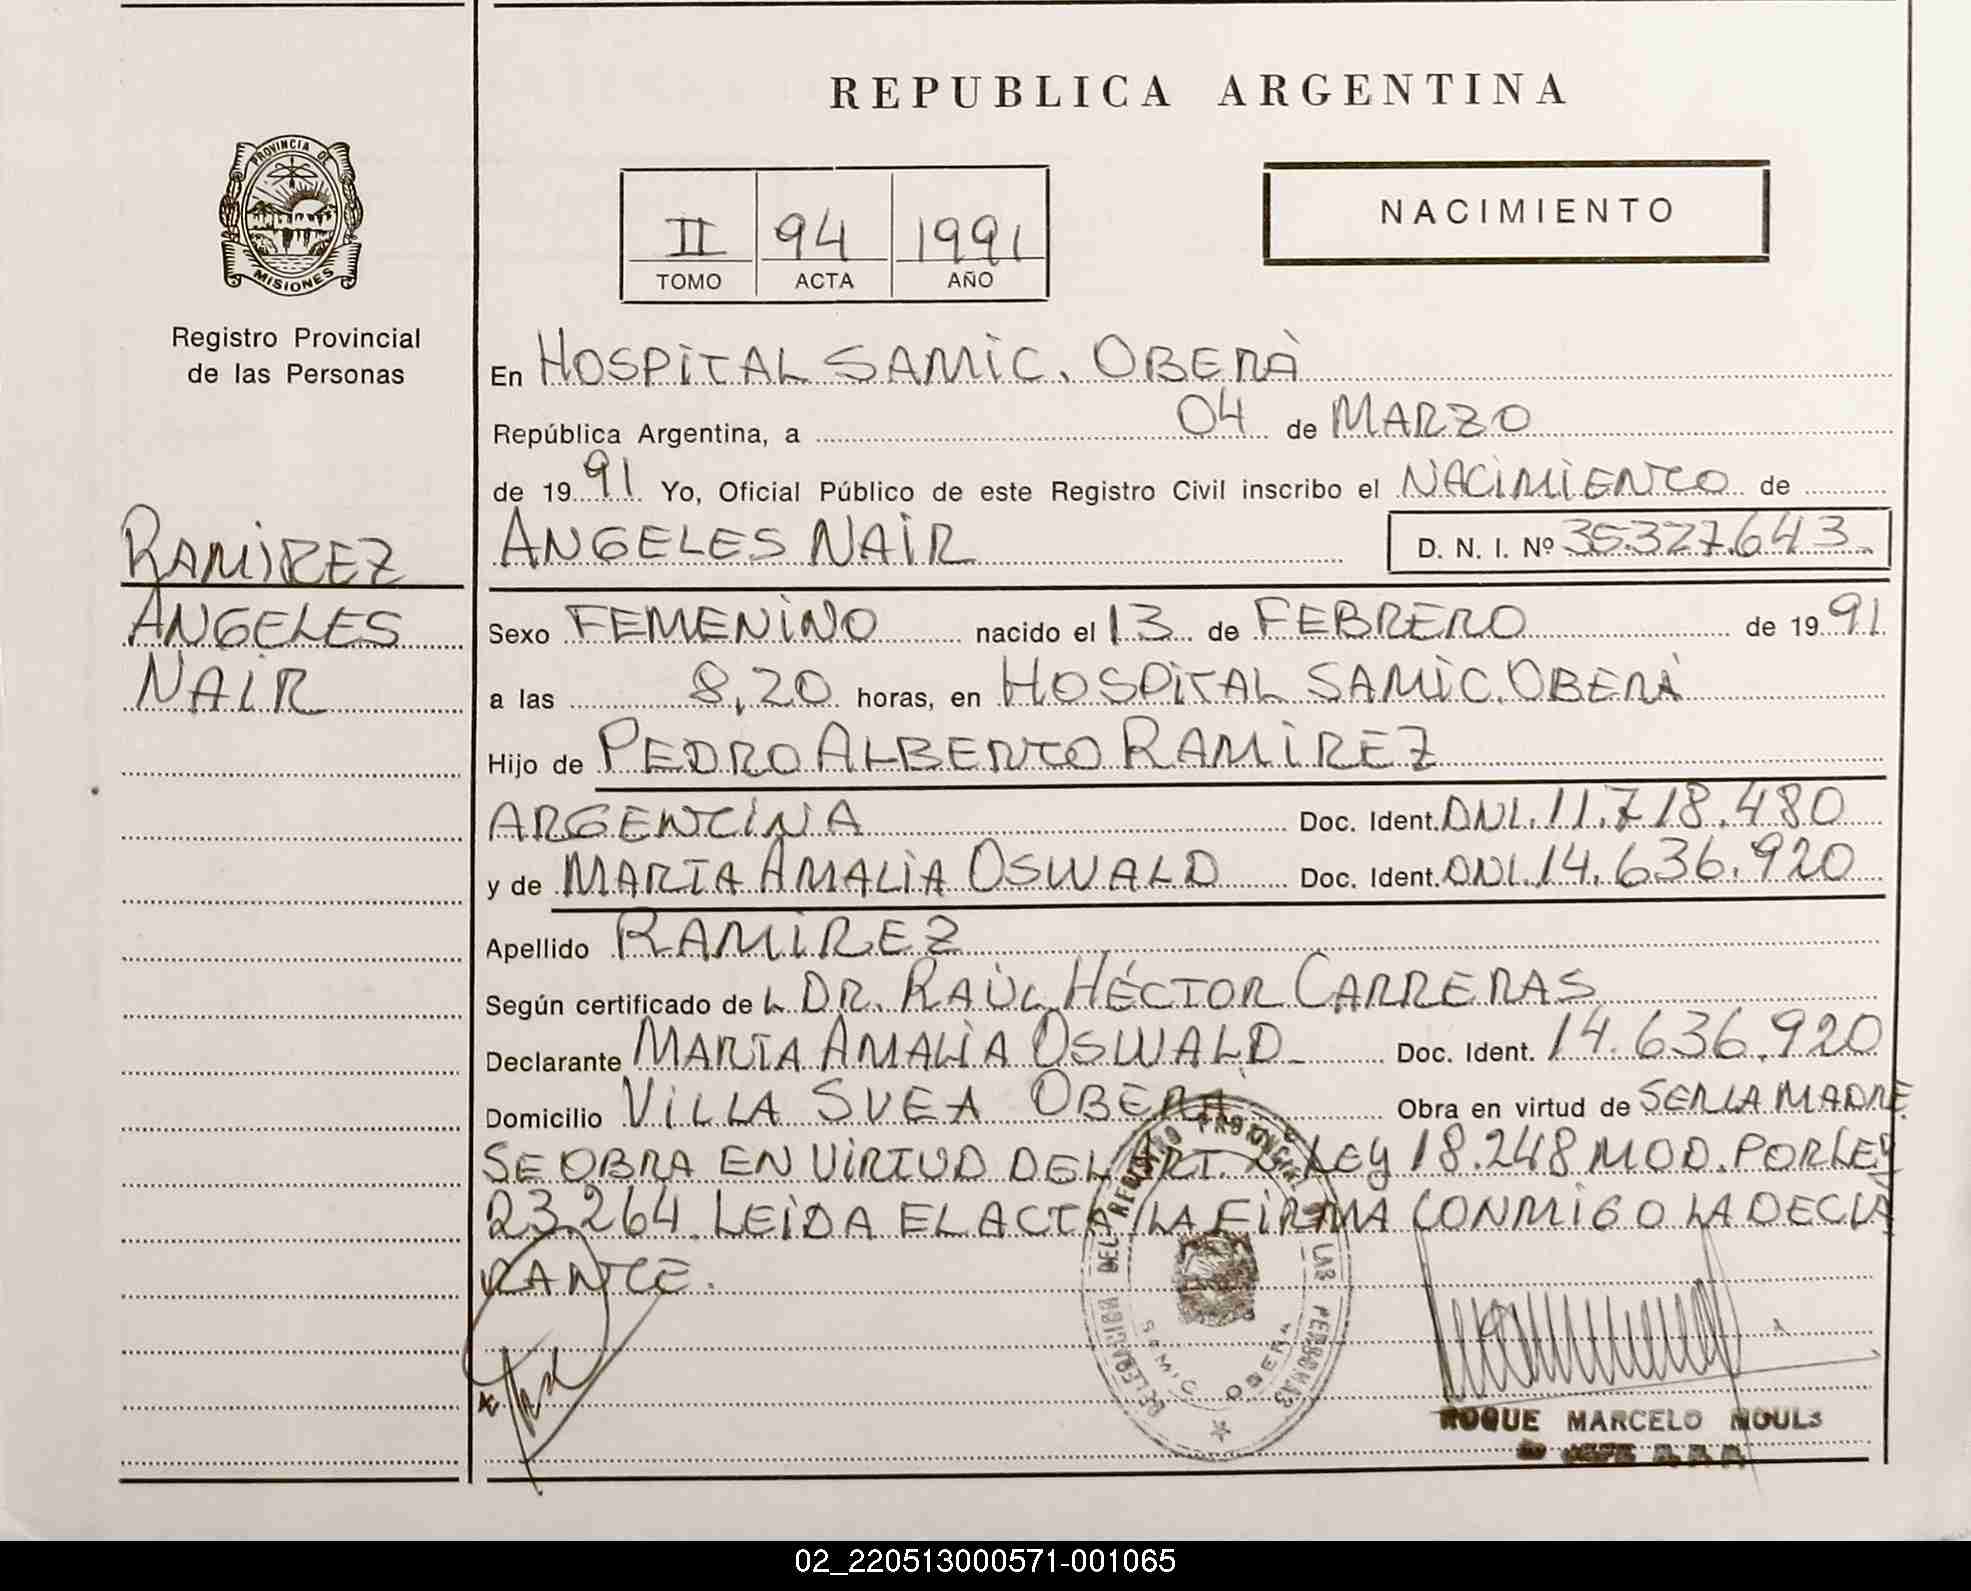 REPUBLICA ARGENTINA
PROVINCIA DE
MISIONES
Registro Provincial
de las Personas
II 94 1991
TOMO ACTA AÑO
NACIMIENTO
RAMIREZ
ANGELES
NAIR
En HOSPITAL SAMIC. OBERÀ
República Argentina, a 04 de MARZO
de 1991 Yo, Oficial Público de este Registro Civil inscribo el NACIMIENTO de
ANGELES NAIR D. N. I. Nº 35.327.643
Sexo FEMENINO nacido el 13 de FEBRERO de 1991
a las 8,20 horas, en HOSPITAL SAMIC. OBERÁ
Hijo de PEDRO ALBERTO RAMIREZ
ARGENTINA Doc. Ident. DNI. 11.718.480
y de MARIA AMALIA OSWALD Doc. Ident. DNI. 14.636.920
Apellido RAMIREZ
Según certificado de L DR. RAÙL HÉCTOR CARRERAS
Declarante MARIA AMALIA OSWALD Doc. Ident. 14.636.920
Domicilio VILLA SVEA OBERA Obra en virtud de SER LA MADRE
SE OBRA EN VIRTUD DEL ART. LEY 18.248 MOD. POR LEY
23.264. LEIDA EL ACTA LA FIRMA CONMIGO LA DECLA
RANTE.
DELEGACION DEL REGISTRO PROVINCIAL DE LAS PERSONAS
SAMIC OBERA
ROQUE MARCELO
02_220513000571-001065